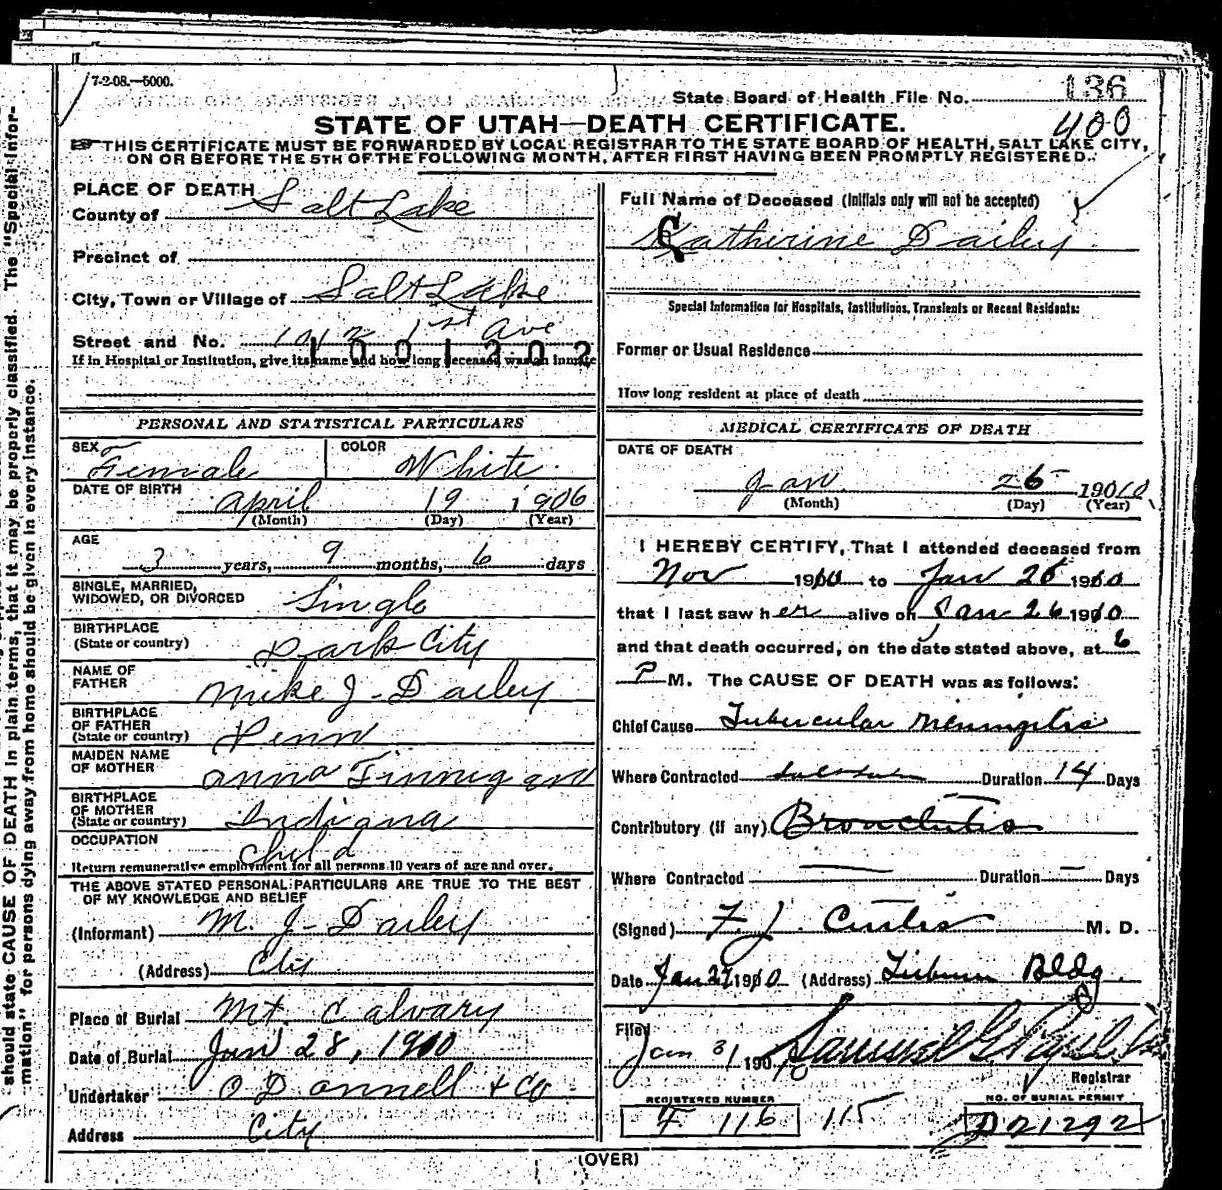 7-2-08.—5000.
136
State Board of Health File No.
400
STATE OF UTAH—DEATH CERTIFICATE.
THIS CERTIFICATE MUST BE FORWARDED BY LOCAL REGISTRAR TO THE STATE BOARD OF HEALTH, SALT LAKE CITY,
ON OR BEFORE THE 5TH OF THE FOLLOWING MONTH, AFTER FIRST HAVING BEEN PROMPTLY REGISTERED.
should state CAUSE OF DEATH in plain terms, that it may be properly classified. The "Special Infor-
mation" for persons dying away from home should be given in every instance.
PLACE OF DEATH
County of Salt Lake
Precinct of
City, Town or Village of Salt Lake
Street and No. 1012 1st Ave
1001202
If in Hospital or Institution, give its name and how long deceased was an inmate
Full Name of Deceased (Initials only will not be accepted)
Catherine Dailey
Special Information for Hospitals, Institutions, Transients or Recent Residents:
Former or Usual Residence
How long resident at place of death
PERSONAL AND STATISTICAL PARTICULARS
SEX Female
COLOR White
DATE OF BIRTH April 19 1906
(Month) (Day) (Year)
AGE
3 years, 9 months, 6 days
SINGLE, MARRIED,
WIDOWED, OR DIVORCED Single
BIRTHPLACE
(State or country) Park City
NAME OF
FATHER Mike J. Dailey
BIRTHPLACE
OF FATHER
(State or country) Penn
MAIDEN NAME
OF MOTHER Anna Finnigan
BIRTHPLACE
OF MOTHER
(State or country) Indiana
OCCUPATION Child
Return remunerative employment for all persons 10 years of age and over.
THE ABOVE STATED PERSONAL PARTICULARS ARE TRUE TO THE BEST
OF MY KNOWLEDGE AND BELIEF
(Informant) M. J. Dailey
(Address) City
Place of Burial Mt. Calvary
Date of Burial Jan 28, 1910
Undertaker O'Donnell & Co
Address City
MEDICAL CERTIFICATE OF DEATH
DATE OF DEATH
Jan. 26 1910
(Month) (Day) (Year)
I HEREBY CERTIFY, That I attended deceased from
Nov 1910 to Jan 26 1910
that I last saw her alive on Jan 26 1910
and that death occurred, on the date stated above, at 6
P M. The CAUSE OF DEATH was as follows:
Chief Cause Tubercular Meningitis
Where Contracted Duration 14 Days
Contributory (if any) Bronchitis
Where Contracted — Duration — Days
(Signed) F. J. Curtis M. D.
Date Jan 27 1910 (Address) Bldg.
Filed
Jan 31 190 Samuel G.
Registrar
REGISTERED NUMBER
F 116 115
NO. OF BURIAL PERMIT
D21292
(OVER)